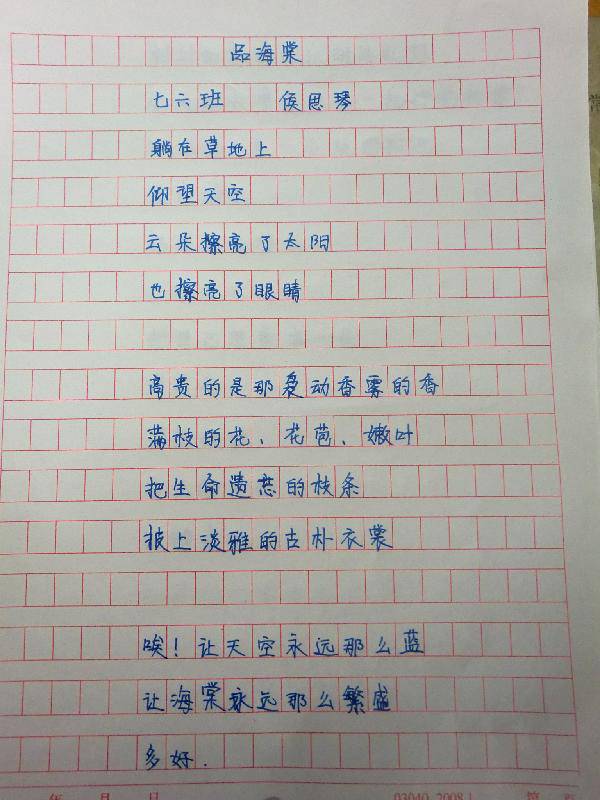 品海棠
七六班 侯思琴
躺在草地上
仰望天空
云朵擦亮了太阳
也擦亮了眼睛
高贵的是那袅动香雾的香
满枝的花、花苞、嫩叶
把生命遗忘的枝条
披上淡雅的古朴衣裳
唉！让天空永远那么蓝
让海棠永远那么繁盛
多好.
年 月 日 03040 2008.1 第